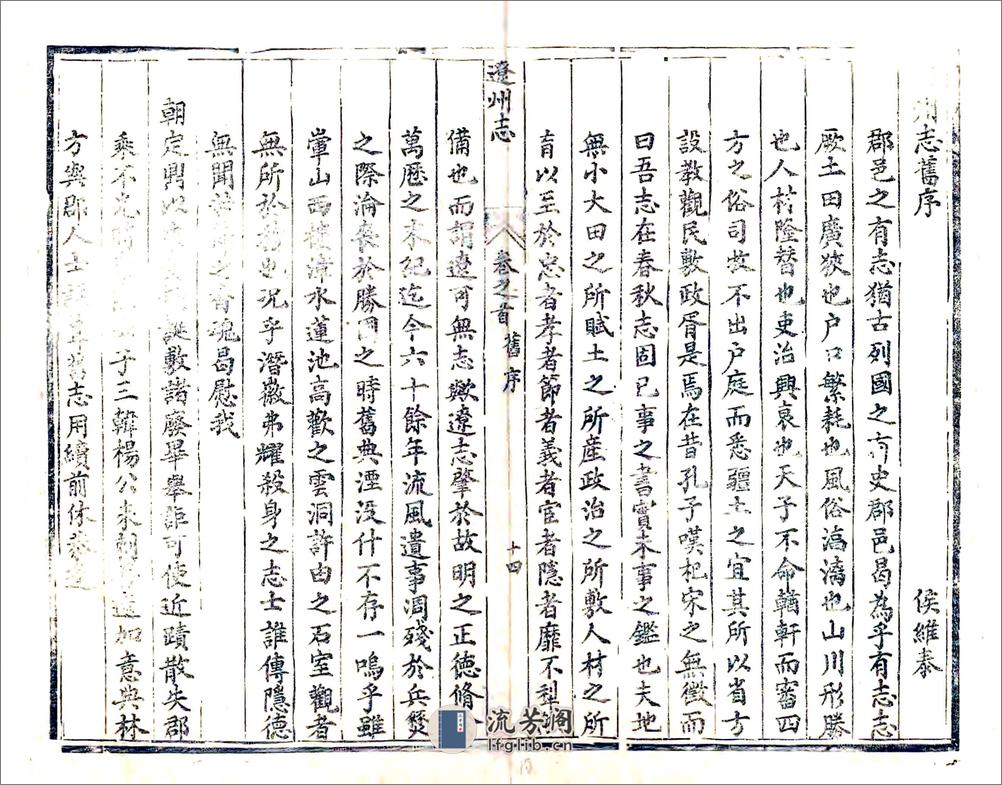 州志舊序
侯維泰
郡邑之有志猶古列國之有史郡邑曷為乎有志志
厥土田廣狹也户口繁耗也風俗湻漓也山川形勝
也人材隆替也吏治興衰也天子不命輶軒而審四
方之俗司牧不出户庭而悉疆土之宜其所以省方
設教觀民敷政胥是焉在昔孔子嘆杞宋之無徵而
曰吾志在春秋志固已事之書實未事之鑑也夫地
無小大田之所賦土之所産政治之所敷人材之所
育以至於忠者孝者節者義者宦者隱者靡不犁
遼州志
卷之首
舊序
十四
備也而謂遼可無志歟遼志肇於故明之正德脩
萬歷之末紀迄今六十餘年流風遺事凋殘於兵燹
之際淪喪於勝國之時舊典湮没什不存一嗚乎雖
輋山西 漳水蓮池高歡之雲洞許由之石室觀者
無所於 也况乎潛徽弗耀殺身之志士誰傳隱德
無聞 之 魂曷慰我
朝定鼎以 誕敷諸廢畢舉詎可使近蹟散失郡
乘不光 于三韓楊公來 加意典林
方輿郡人士 舊志用續前休
流芳阁
lfglib.cn